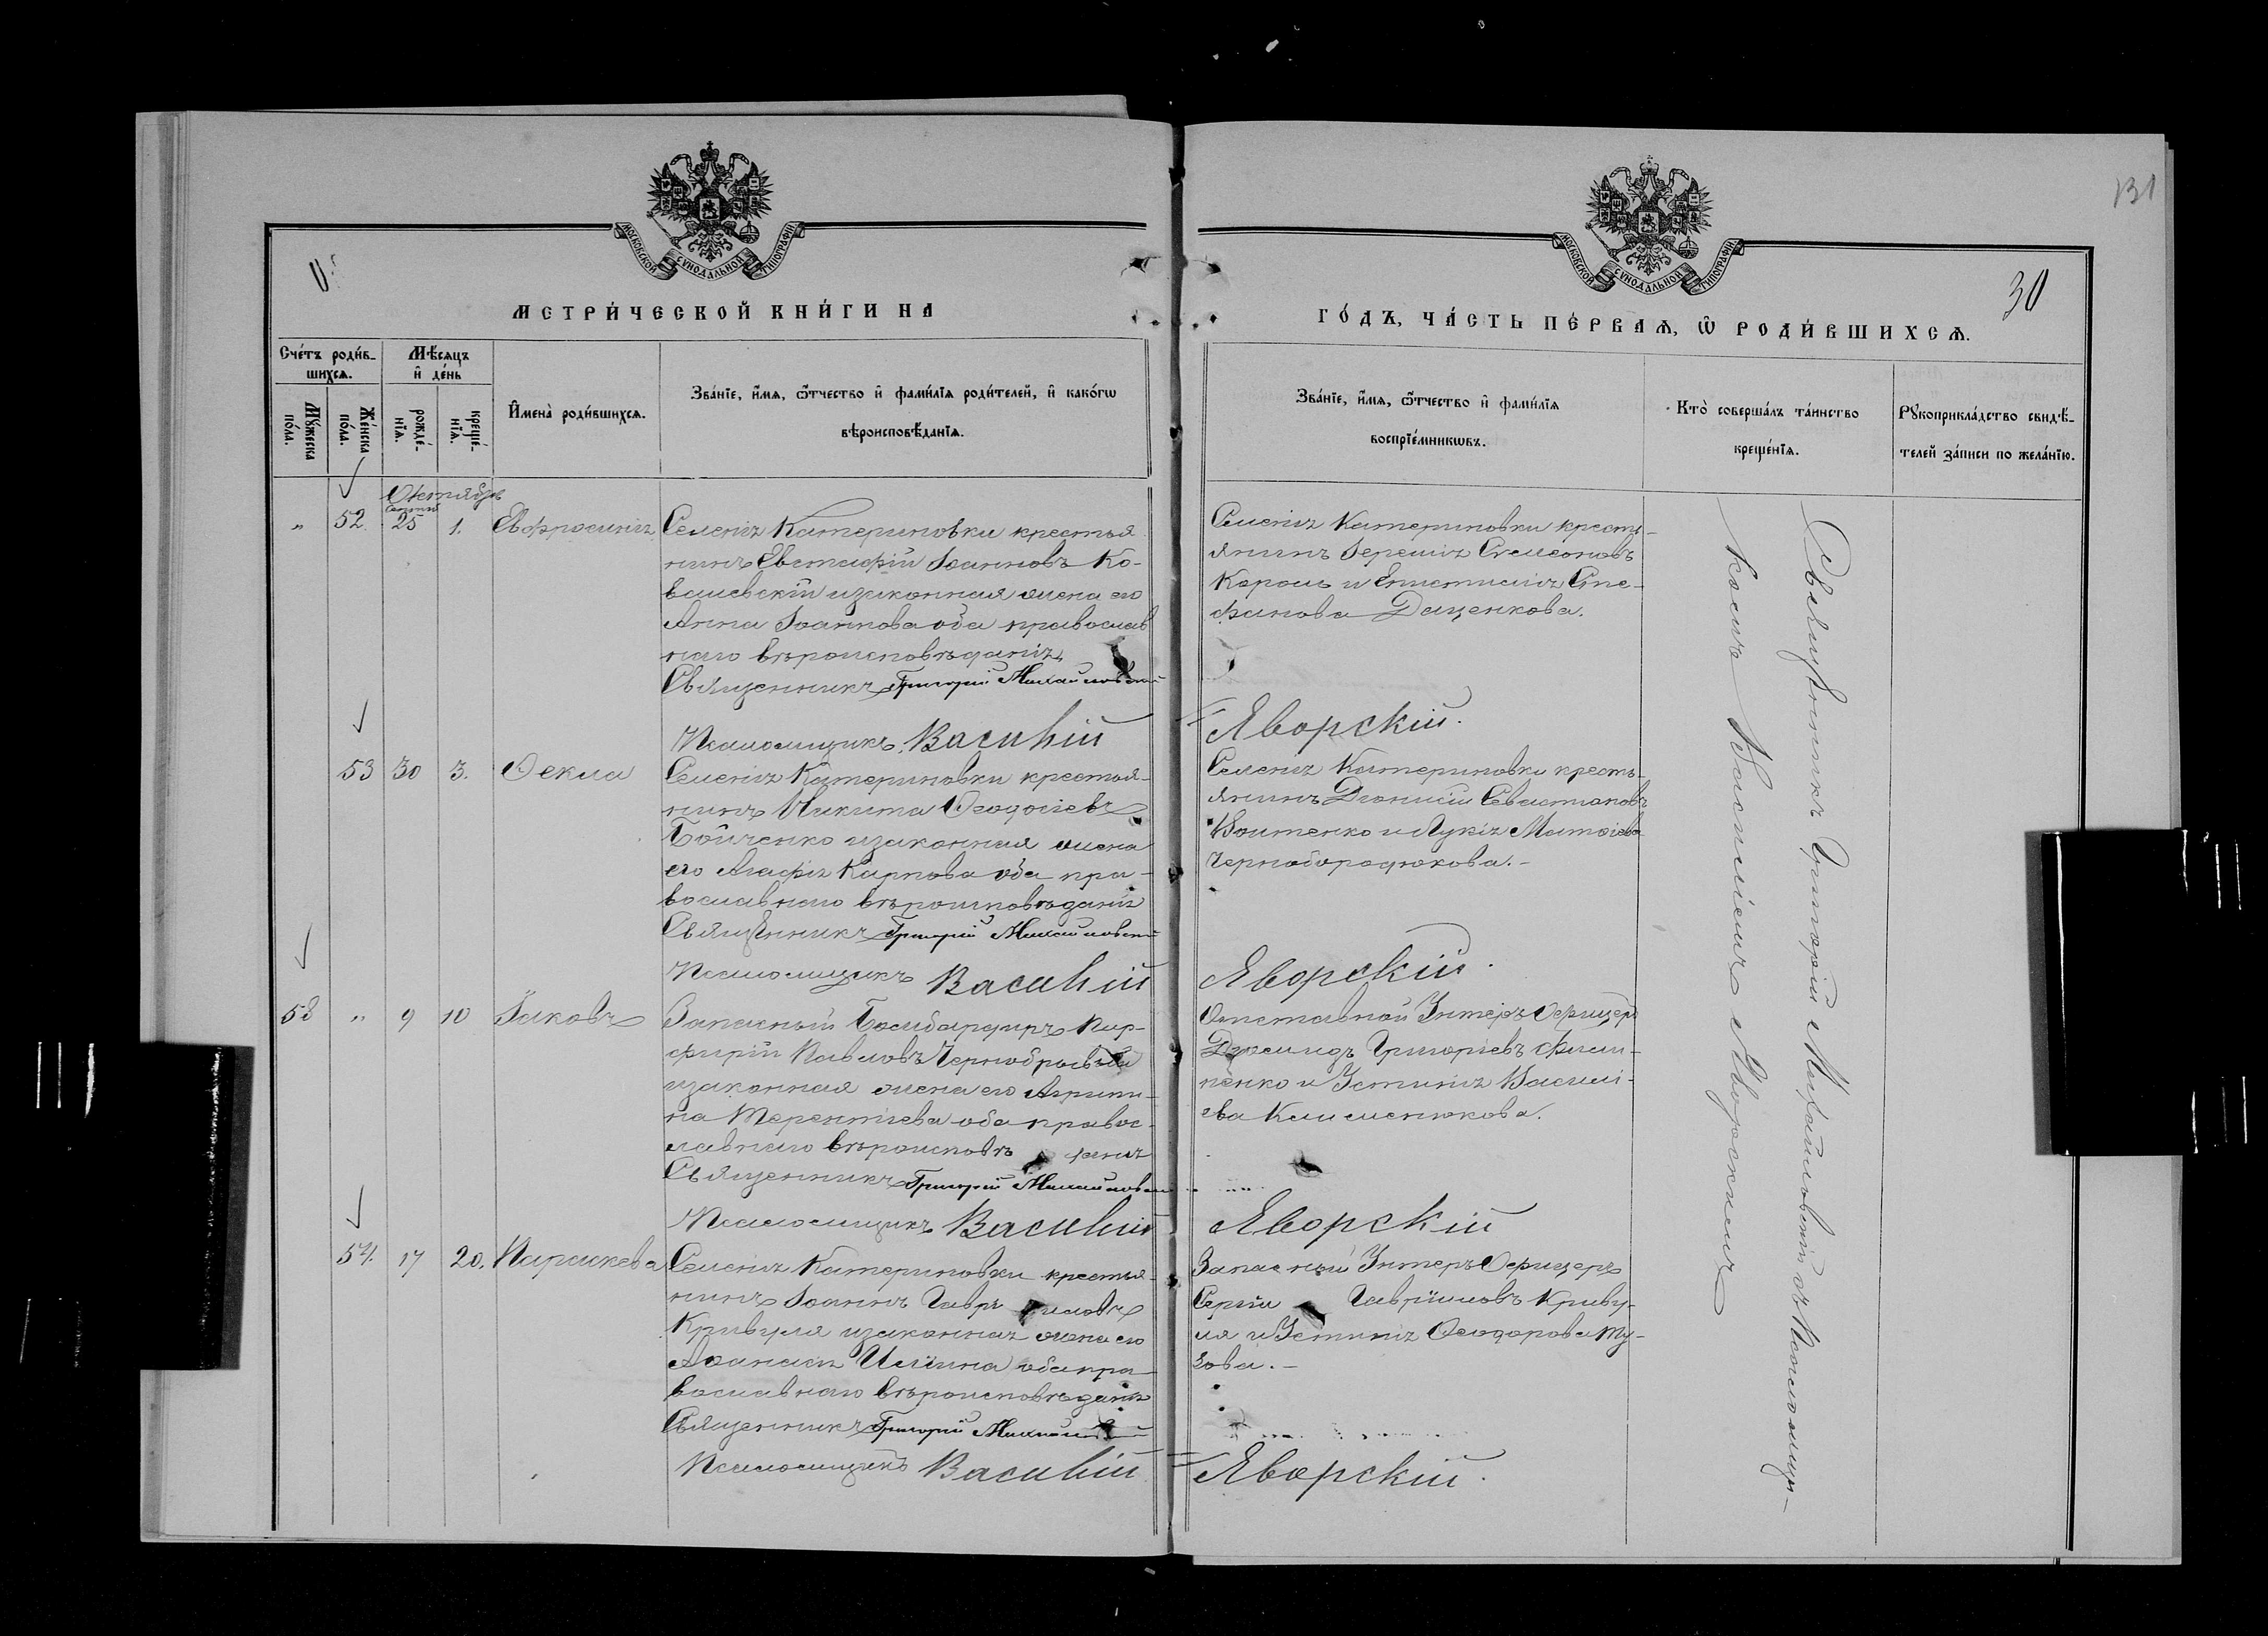 131
30
МОСКОВСКОЙ СѴНОДАЛЬНОЙ ТИПОГРАФІИ
МОСКОВСКОЙ СѴНОДАЛЬНОЙ ТИПОГРАФІИ
МЕТРИ́ЧЕСКОЙ КНИ́ГИ НА
ГО́ДЪ, ЧА́СТЬ ПЕ́РВАѦ, Ѡ҆ РОДИ́ВШИХСѦ.
Сче́тъ роди́в-
шихсѧ.
Мꙋ́жеска по́ла.
Же́нска по́ла.
Мѣ́сѧцъ
и҆ де́нь
рожде́-
нїѧ.
креще́-
нїѧ.
И҆мена̀ роди́вшихсѧ.
Зва́нїе, и҆́мѧ, ѻ҆́тчество и҆ фами́лїѧ роди́телей, и҆ како́гѡ
вѣроисповѣ́данїѧ.
Зва́нїе, и҆́мѧ, ѻ҆́тчество и҆ фами́лїѧ
воспрїе́мникѡвъ.
Кто̀ соверша́лъ та́инство
креще́нїѧ.
Рꙋкоприкла́дство свидѣ́-
телей за́писи по жела́нїю.
Октябрь
" 52 25 1. Евфросинія
Селенія Катериновки крестья
нинъ Евстафій Іоанновъ Ко-
валевскій и законная жена его
Анна Іоаннова оба православ
наго вѣроисповѣданія
Священникъ Григорій Михайловскій
Псаломщикъ Василій Яворскій.
Селенія Катериновки кресть-
янинъ Іеремія Симеоновъ
Король и Епистимія Сте-
фанова Даценкова.
53 30 3. Ѳекла
Селенія Катериновки крестья-
нинъ Никита Ѳеодосіевъ
Бойченко и законная жена
его Агафія Карпова оба пра-
вославнаго вѣроисповѣданія
Священникъ Григорій Михайловскій
Псаломщикъ Василій Яворскій.
Селенія Катериновки кресть-
янинъ Діонисій Севастіановъ
Войтенко и Лукія Матѳіева
Чернобородюкова.-
58 " 9 10 Іаковъ
Запасный Бомбардиръ Пор-
фирій Павловъ
и законная жена его Агрипи-
на Терентіева оба правос-
лавнаго вѣроисповѣ данія
Священникъ Григорій Михайловскій
Псаломщикъ Василій Яворскій
Отставной Унтеръ Офицеръ
Діомидъ Григоріевъ Филип-
пенко и Устинія Васили-
ева Клименюкова.
54. 17 20. Параскева
Селенія Катериновки крестья-
нинъ Іоаннъ Гаврі иловъ
Кривуля и законная жена его
Аѳанасія Иліина оба пра-
вославнаго вѣроисповѣданія
Священникъ Григорій Михайловскій
Псаломщикъ Василій Яворскій.
Запасный Унтеръ Офицеръ
Сергій Гавріиловъ Криву-
ля и Устинія Ѳеодорова Ту-
зова.-
Священникъ Григорій Михайловскій съ Псаломщи-
комъ Василіемъ Яворскимъ